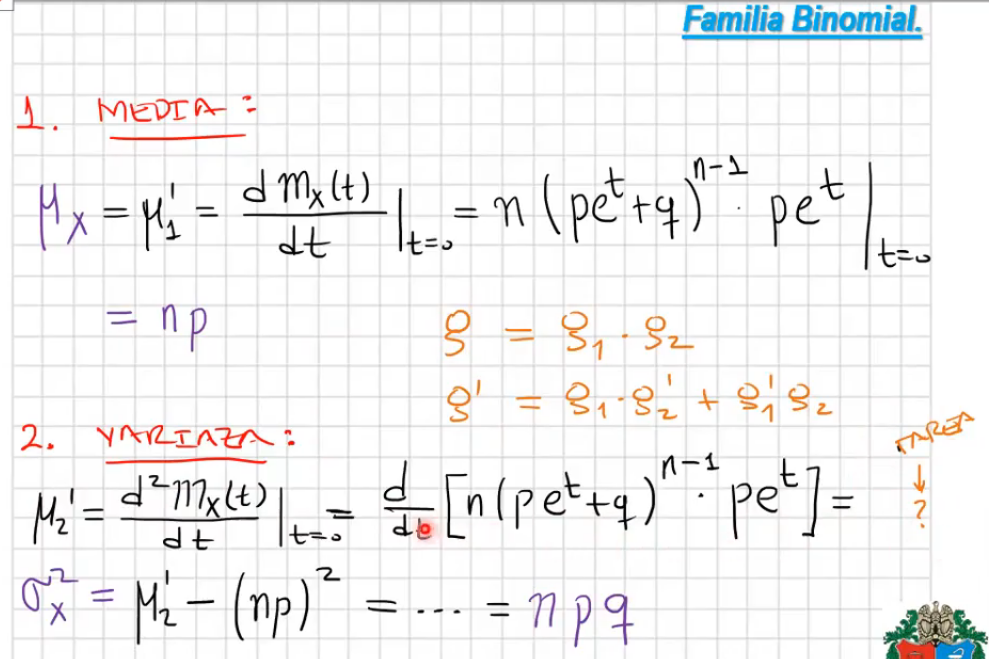 Familia Binomial.
1. MEDIA:
μₓ = μ₁' = d mₓ(t) / dt |t=0 = n (pe^t + q)^(n-1) · pe^t |t=0
= np
g = g₁ · g₂
g' = g₁ · g₂' + g₁' g₂
2. VARIAZA:
TAREA
↓
?
μ₂' = d² mₓ(t) / dt |t=0 = d/dt [n (pe^t + q)^(n-1) · pe^t] =
σₓ² = μ₂' - (np)² = ... = npq